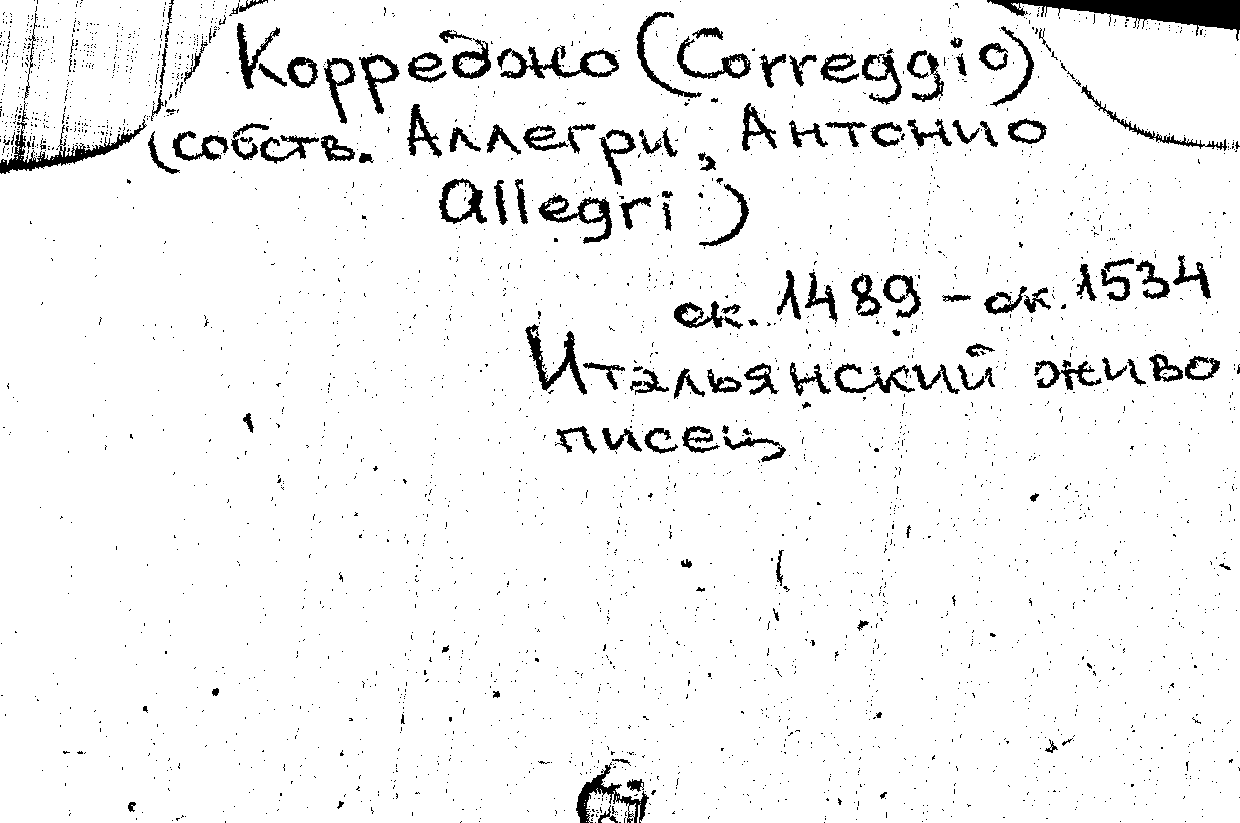 Корреджо (Correggio)
(собств. Аллегри, Антонио
Allegri)
ок. 1489 – ок. 1534
Итальянский живо
писец